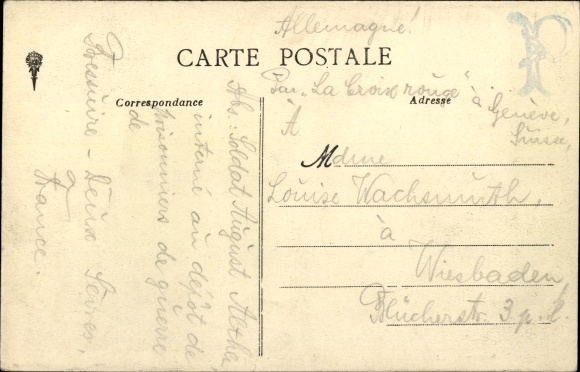 Allemagne!
CARTE POSTALE
Correspondance
Adresse
Par „La Croix rouge" à Genève,
Suisse,
À
Mdme
Louise Wachsmuth,
à
Wiesbaden
Blücherstr. 3 p. l.
Abs: Soldat August
interné au dépôt de
prisonniers de guerre
de
Bressuire - Deux Sèvres,
France.
P